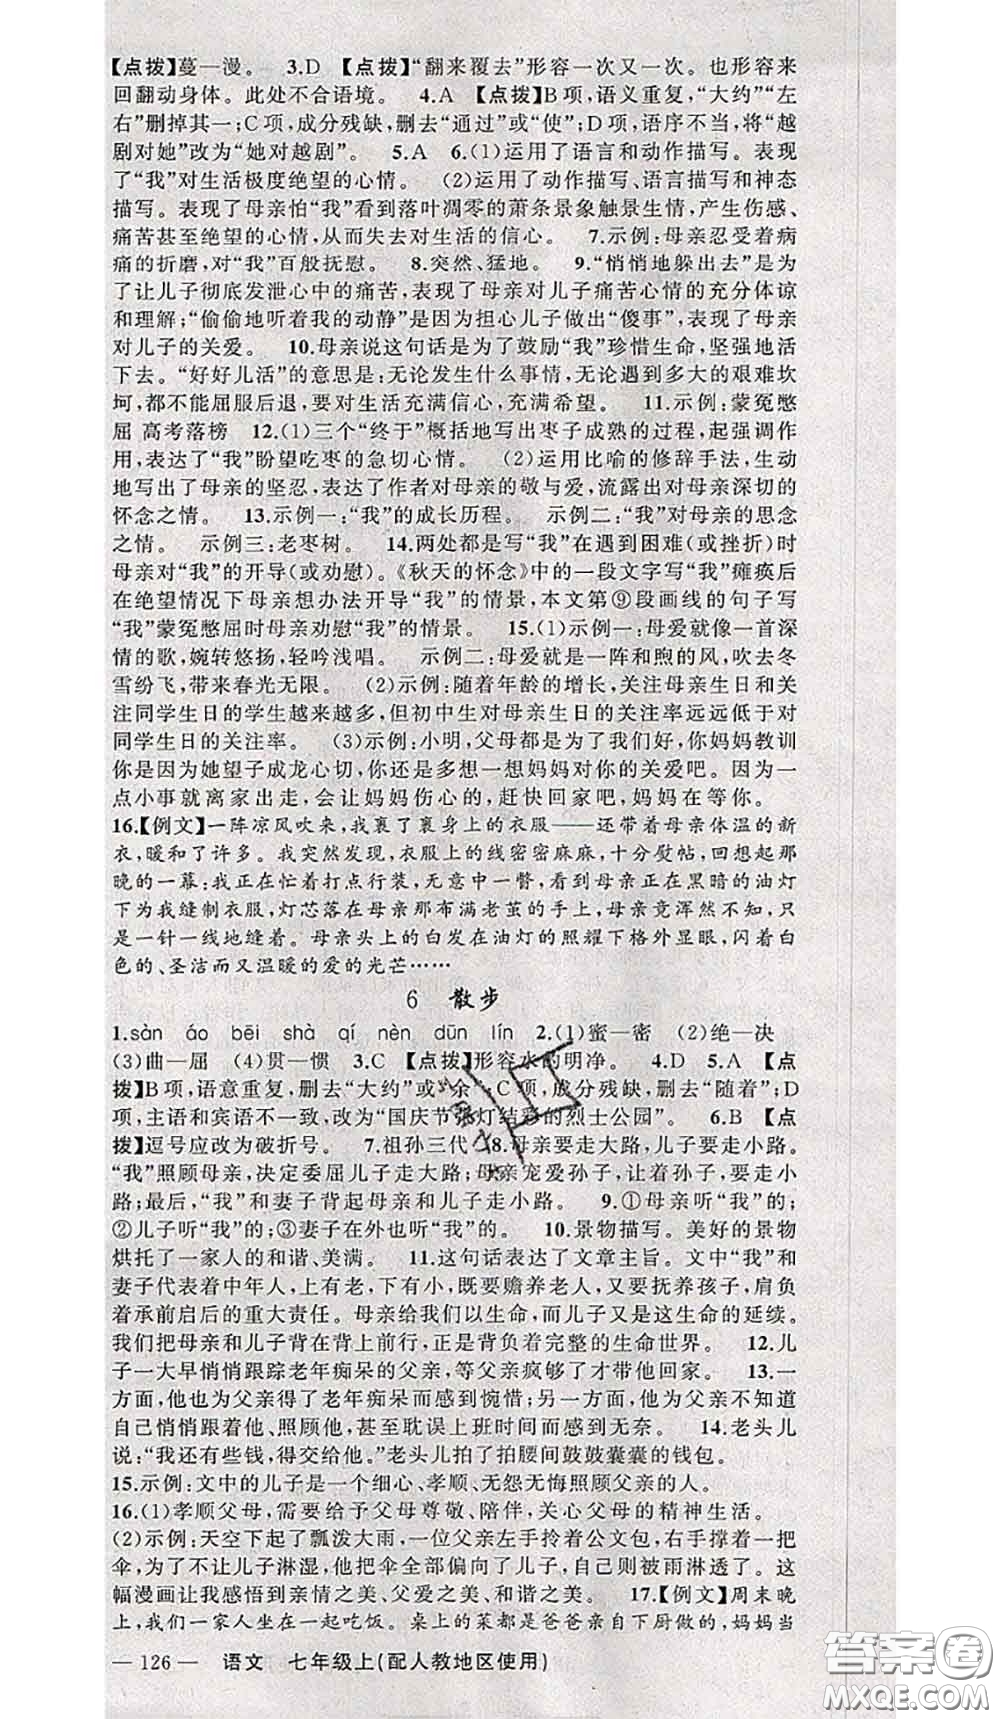 【点拨】蔓—漫。 3.D 【点拨】“翻来覆去”形容一次又一次。也形容来
回翻动身体。此处不合语境。 4.A 【点拨】B项,语义重复,“大约”“左
右”删掉其一;C项,成分残缺,删去“通过”或“使”;D项,语序不当,将“越
剧对她”改为“她对越剧”。 5.A 6.(1)运用了语言和动作描写。表现
了“我”对生活极度绝望的心情。 (2)运用了动作描写、语言描写和神态
描写。表现了母亲怕“我”看到落叶凋零的萧条景象触景生情,产生伤感、
痛苦甚至绝望的心情,从而失去对生活的信心。 7.示例:母亲忍受着病
痛的折磨,对“我”百般抚慰。 8.突然、猛地。 9.“悄悄地躲出去”是为
了让儿子彻底发泄心中的痛苦,表现了母亲对儿子痛苦心情的充分体谅
和理解;“偷偷地听着我的动静”是因为担心儿子做出“傻事”,表现了母亲
对儿子的关爱。 10.母亲说这句话是为了鼓励“我”珍惜生命,坚强地活
下去。“好好儿活”的意思是:无论发生什么事情,无论遇到多大的艰难坎
坷,都不能屈服后退,要对生活充满信心,充满希望。 11.示例:蒙冤憋
屈 高考落榜 12.(1)三个“终于”概括地写出枣子成熟的过程,起强调作
用,表达了“我”盼望吃枣的急切心情。 (2)运用比喻的修辞手法,生动
地写出了母亲的坚忍,表达了作者对母亲的敬与爱,流露出对母亲深切的
怀念之情。 13.示例一:“我”的成长历程。 示例二:“我”对母亲的思念
之情。 示例三:老枣树。 14.两处都是写“我”在遇到困难(或挫折)时
母亲对“我”的开导(或劝慰)。《秋天的怀念》中的一段文字写“我”瘫痪后
在绝望情况下母亲想办法开导“我”的情景,本文第⑨段画线的句子写
“我”蒙冤憋屈时母亲劝慰“我”的情景。 15.(1)示例一:母爱就像一首深
情的歌,婉转悠扬,轻吟浅唱。 示例二:母爱就是一阵和煦的风,吹去冬
雪纷飞,带来春光无限。 (2)示例:随着年龄的增长,关注母亲生日和关
注同学生日的学生越来越多,但初中生对母亲生日的关注率远远低于对
同学生日的关注率。 (3)示例:小明,父母都是为了我们好,你妈妈教训
你是因为她望子成龙心切,你还是多想一想妈妈对你的关爱吧。因为一
点小事就离家出走,会让妈妈伤心的,赶快回家吧,妈妈在等你。
16.【例文】一阵凉风吹来,我裹了裹身上的衣服——还带着母亲体温的新
衣,暖和了许多。我突然发现,衣服上的线密密麻麻,十分熨帖,回想起那
晚的一幕:我正在忙着打点行装,无意中一瞥,看到母亲正在黑暗的油灯
下为我缝制衣服,灯芯落在母亲那布满老茧的手上,母亲竟浑然不知,只
是一针一线地缝着。母亲头上的白发在油灯的照耀下格外显眼,闪着白
色的、圣洁而又温暖的爱的光芒……
6 散步
1.sàn áo bēi shà qí nèn dūn lín 2.(1)蜜—密 (2)绝—决
(3)曲—屈 (4)贯—惯 3.C 【点拨】形容水的明净。 4.D 5.A 【点
拨】B项,语意重复,删去“大约”或“余”;C项,成分残缺,删去“随着”;D
项,主语和宾语不一致,改为“国庆节张灯结彩的烈士公园”。 6.B 【点
拨】逗号应改为破折号。 7.祖孙三代 8.母亲要走大路,儿子要走小路。
“我”照顾母亲,决定委屈儿子走大路;母亲宠爱孙子,让着孙子,要走小
路;最后,“我”和妻子背起母亲和儿子走小路。 9.①母亲听“我”的;
②儿子听“我”的;③妻子在外也听“我”的。 10.景物描写。美好的景物
烘托了一家人的和谐、美满。 11.这句话表达了文章主旨。文中“我”和
妻子代表着中年人,上有老,下有小,既要赡养老人,又要抚养孩子,肩负
着承前启后的重大责任。母亲给我们以生命,而儿子又是这生命的延续。
我们把母亲和儿子背在背上前行,正是背负着完整的生命世界。 12.儿
子一大早悄悄跟踪老年痴呆的父亲,等父亲疯够了才带他回家。 13.一
方面,他也为父亲得了老年痴呆而感到惋惜;另一方面,他的父亲不知道
自己悄悄跟着他、照顾他,甚至耽误上班时间而感到无奈。 14.老头儿
说:“我还有些钱,得交给他。”老头儿拍了拍腰间鼓鼓囊囊的钱包。
15.示例:文中的儿子是一个细心、孝顺、无怨无悔照顾父亲的人。
16.(1)孝顺父母,需要给予父母尊敬、陪伴,关心父母的精神生活。
(2)示例:天空下起了瓢泼大雨,一位父亲左手拎着公文包,右手撑着一把
伞,为了不让儿子淋湿,他把伞全部偏向了儿子,自己则被雨淋透了。这
幅漫画让我感悟到亲情之美、父爱之美、和谐之美。 17.【例文】周末晚
上,我们一家人坐在一起吃饭。桌上的菜都是爸爸亲自下厨做的,妈妈当
— 126 — 语文 七年级上(配人教地区使用)
答案圈
MXQE.COM